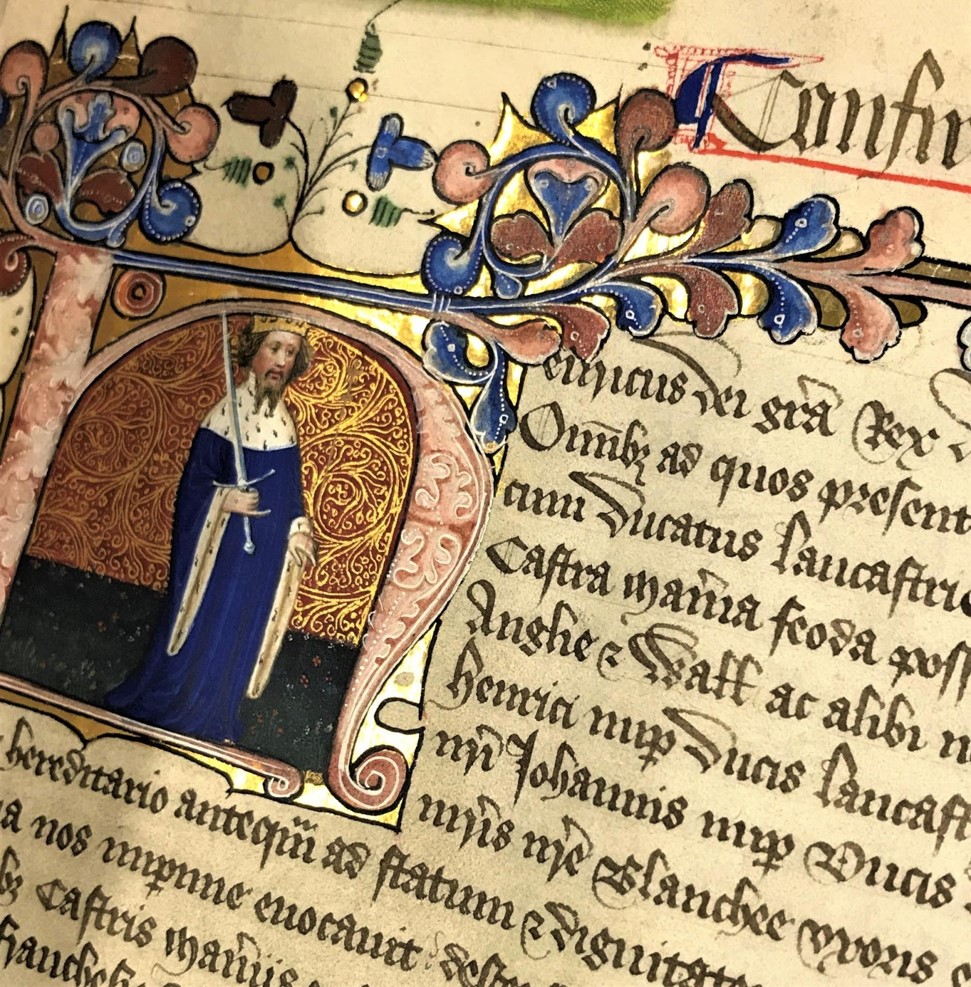 Confir
enricus dei gr̄a Rex
Om̄ibȝ ad quos present
cum Ducatus lancastrie
Castra man̄ia feoda poss
Anglie ⁊ Wall ac alibi
henrici nup Ducis lancast
nr̄i Johannis nup Ducis
mr̄is nr̄e Blanchee uxoris
hereditario anteqm̄ ad statum ⁊ dignitate
nos nupime euocauit
Castris man̄iis